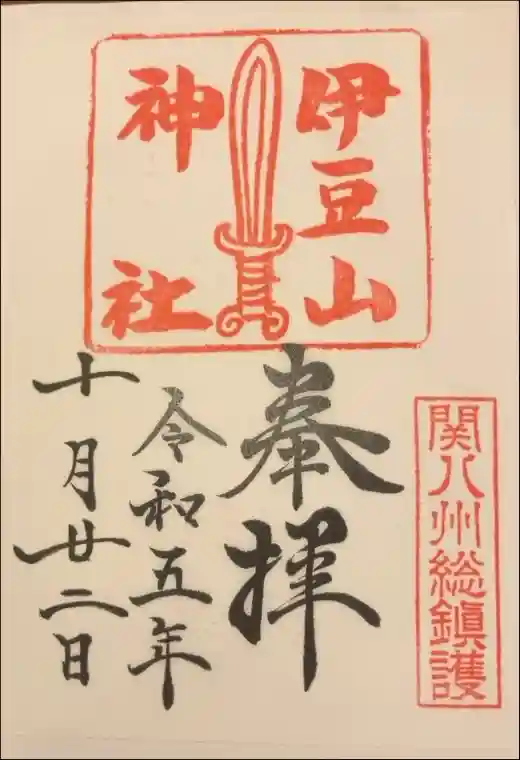 伊豆山
神社
関八州総鎮護
奉拝
令和五年
十月廿二日